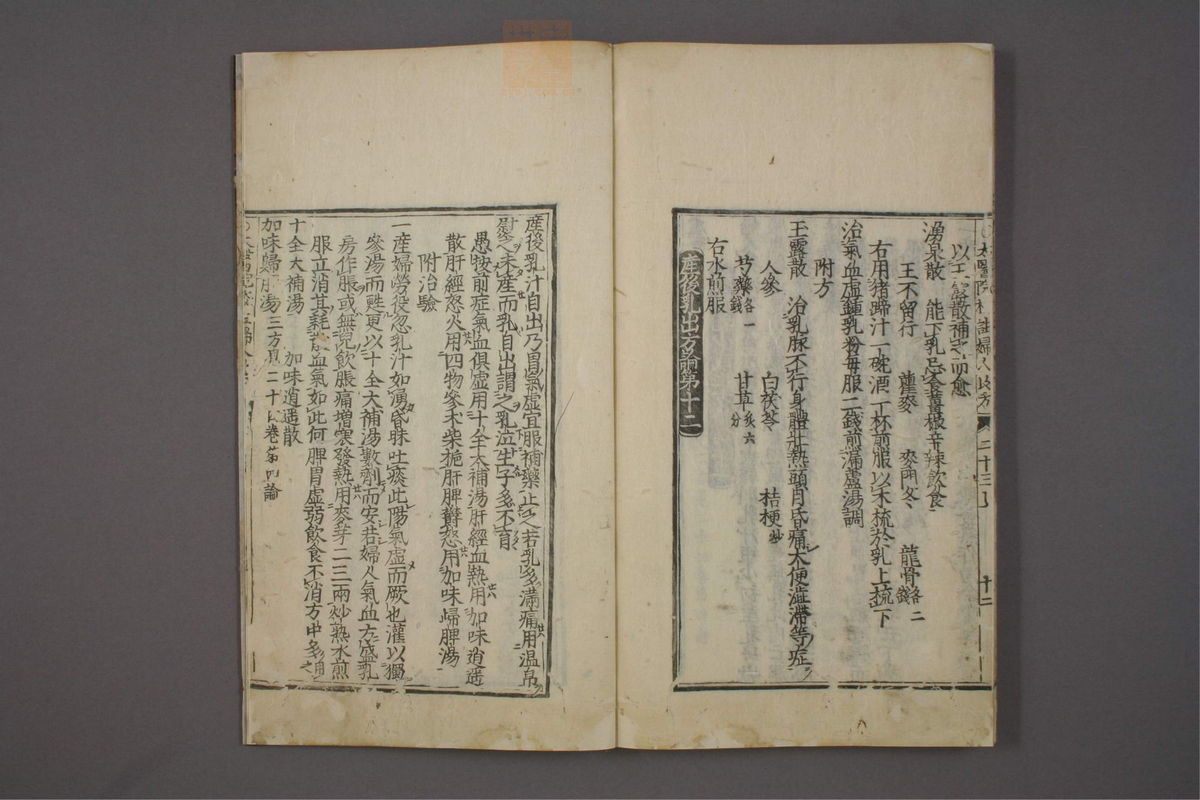 太醫院校註婦人良方 卷二十三 十二
以玉露散補之而愈
湧泉散 能下乳忌食薑椒辛辣飲食
王不留行 瞿麥 麥門冬 龍骨各二錢
右用猪蹄汁一碗酒一杯煎服以木梳於乳上梳下
治氣血虛鍾乳粉每服二錢煎漏蘆湯調
附方
玉露散 治乳脉不行身體壯熱頭目昏痛大便澁滯等症
人參 白茯苓 桔梗炒
芍藥各一錢 甘草炙六分
右水煎服
產後乳出方論第十二
產後乳汁自出乃胃氣虛宜服補藥止之若乳多滿痛用温帛
熨之未產而乳自出謂之乳泣生子多不育
愚按前症氣血俱虛用十全大補湯肝經血熱用加味逍遥
散肝經怒火用四物參朮柴梔肝脾鬱怒用加味歸脾湯
附治驗
一產婦勞役忽乳汁如湧昏昧吐痰此陽氣虛而厥也灌以獨
參湯而甦更以十全大補湯數劑而安若婦人氣血方盛乳
房作脹或無兒飲脹痛增寒發熱用麥芽二三兩炒熟水煎
服立消其耗散血氣如此何脾胃虛弱飲食不消方中多用之
十全大補湯 加味逍遥散
加味歸脾湯三方見二十四卷第四論